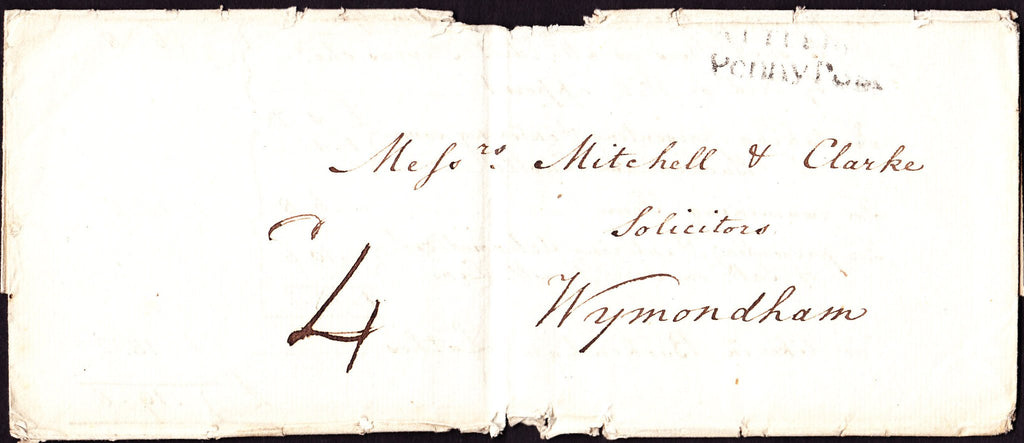 Penny Post
Messrs. Mitchell & Clarke
Solicitors
Wymondham
4